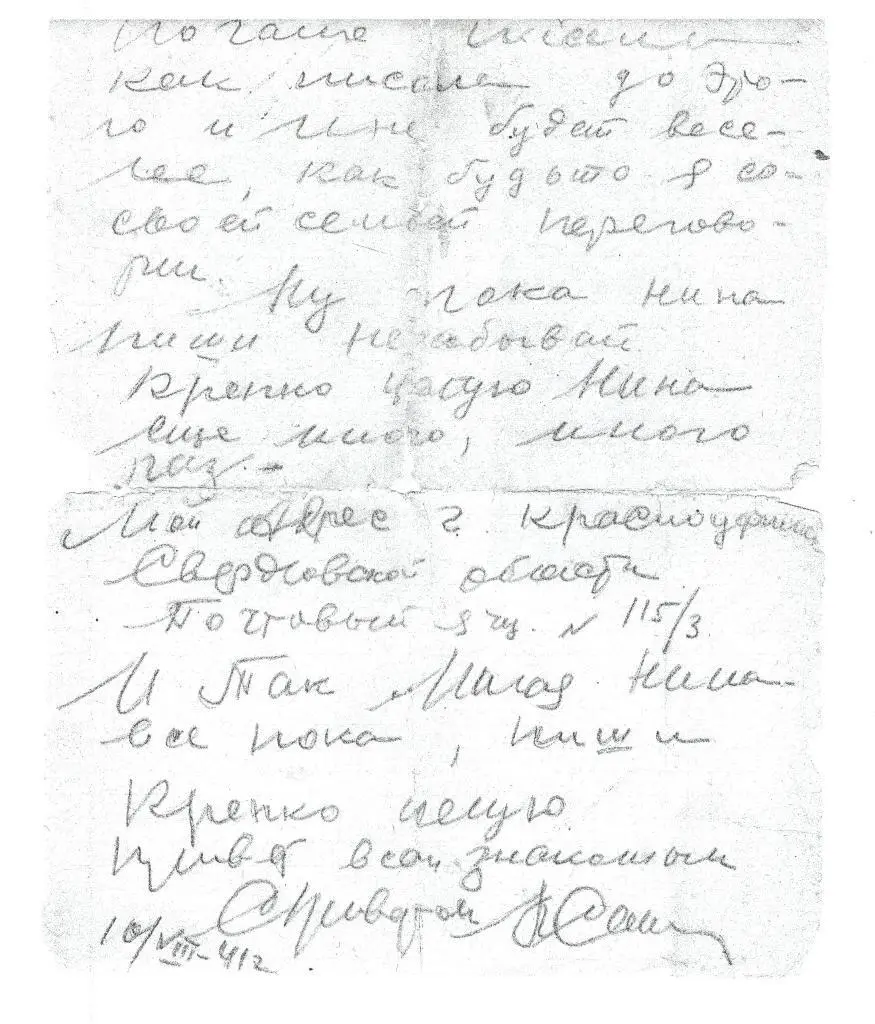 почаще пиши
как писала до это-
го и мне будет весе-
лее, как будьто я со-
своей семьей перегово-
рил.
Ну пока Нина
пиши незабывай
Крепко целую Нина
еще много, много
раз. –
Мой Адрес г. Красноуфимс
Свердловской области
Почтовый ящ. № 115/3
И так Милая Нина
все пока, пиши
Крепко целую
Привет всем знакомым
С Приветом
10/VIII-41г